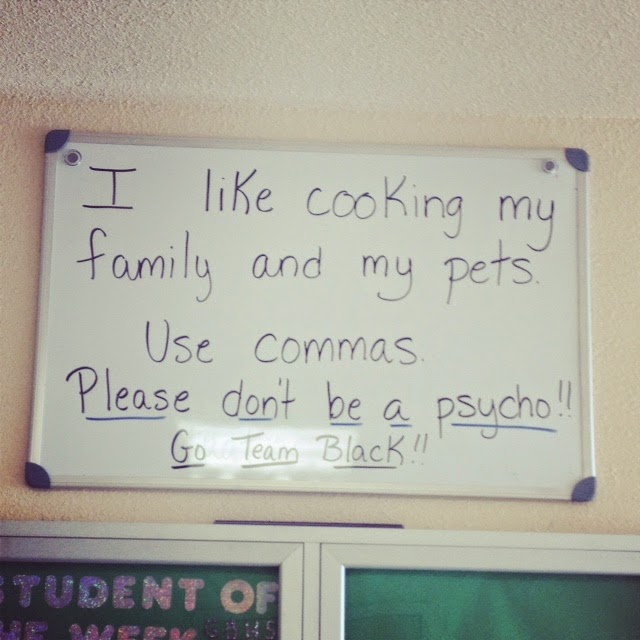 I like cooking my
family and my pets.
Use commas.
Please don't be a psycho!!
Go Team Black!!
STUDENT OF
THE WEEK